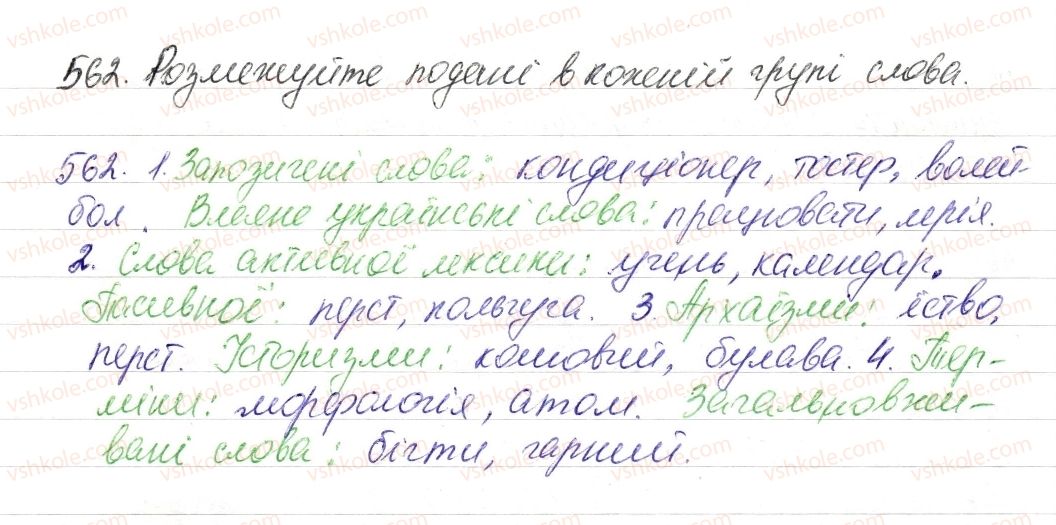 562. Розмежуйте подані в кожній групі слова.
562. 1. Запозичені слова: кондиціонер, тостер, волей-
бол. Власне українські слова: працювати, мрія.
2. Слова активної лексики: учень, календар.
Пасивної: перст, кольчуга. 3 Архаїзми: єство,
перст. Історизми: кошовий, булава. 4. Тер-
міни: морфологія, атом. Загальновжи-
вані слова: бігти, гарний.